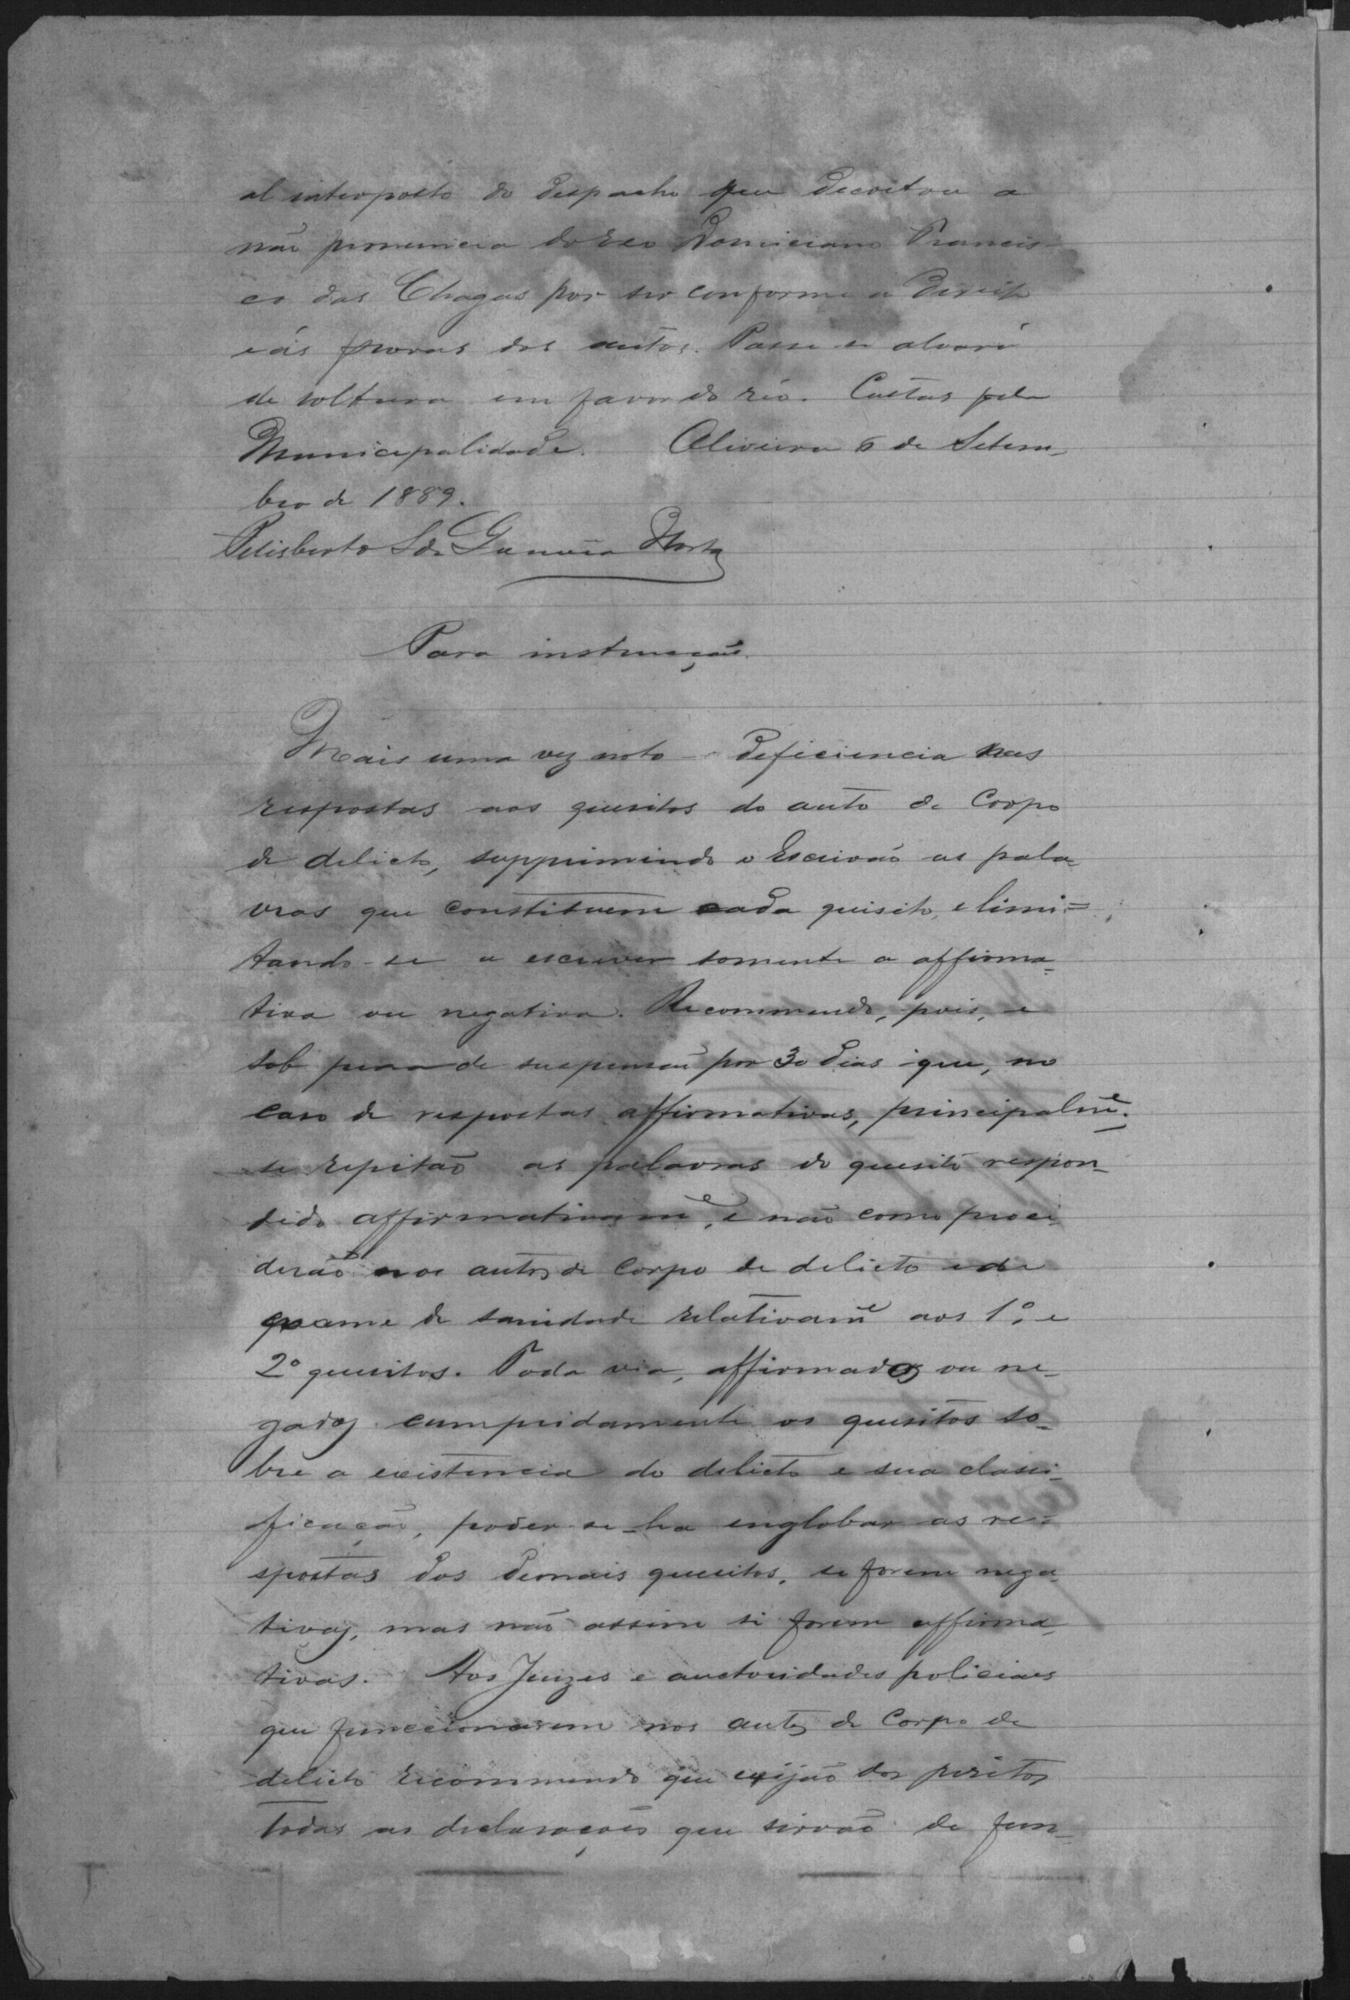 al interposto do despacho que decretou a
não pronuncia do reo Domiciano Francis-
co das Chagas por ser conforme a Direito
e ás provas dos autos. Passe se alvará
de soltura em favor do réo. Custas pela
Municipalidade. Oliveira 6 de Setem-
bro de 1889.
Felisberto S. de Gouvêa Horta
Para instrucção.
Mais uma vez noto deficiencia nas
respostas aos quesitos do auto de Corpo
de delicto, supprimindo o Escrivão as pala-
vras que constituem cada quisito, e limi=
tando-se a escrever somente a affirma-
tiva ou negativa. Recommendo, pois, e
sob pena de suspensão por 30 dias que, no
caso de respostas affirmativas, principalmẽ.
se repitão as palavras do quesito respon-
dido affirmativamẽ, e não como proce
derão nos autos de Corpo de delicto e de
exame de sanidade relativamẽ aos 1º e
2º quesitos. Toda via, affirmados ou ne-
gados cumpridamente os quesitos so-
bre a existencia do delicto e sua classi-
ficação, poder-se-ha englobar as re-
spostas dos demais quesitos, se forem nega-
tivas, mas não assim si forem affirma-
tivas. Aos Juizes e auctoridades policiaes
que funccionarem nos autos de Corpo de
delicto recommendo que exijão dos peritos
todas as declarações que sirvão de fun-